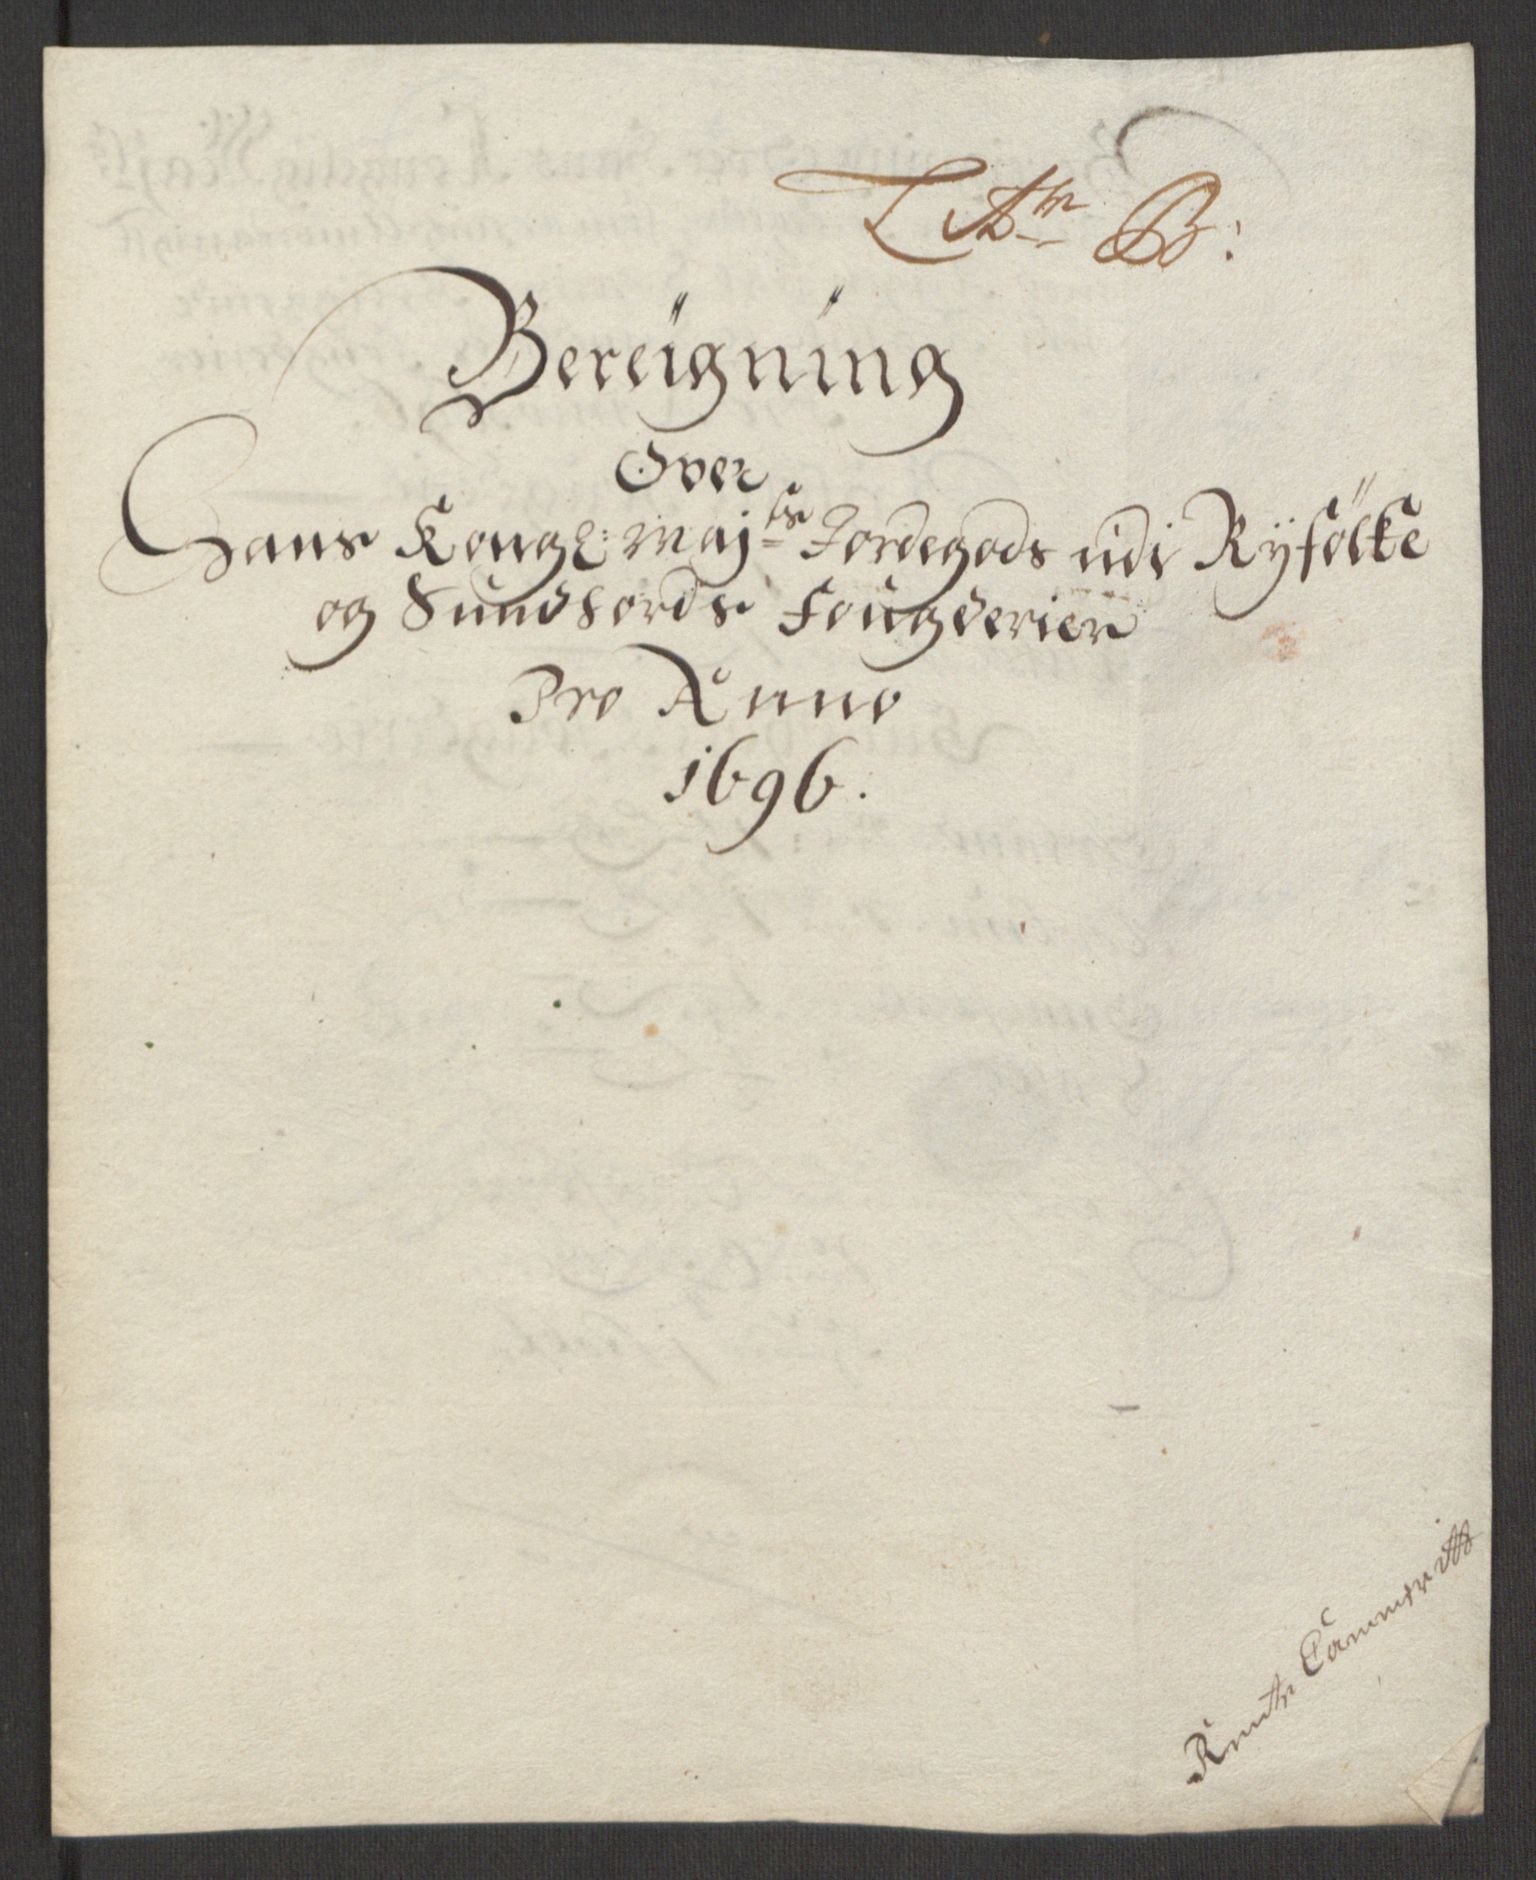 Littr B:
Bereigning
Over
Hans Kongl: Maj:ts Jordegods udi Ryfölke
og Sundhords Fougderier
Pro Anno
1696.
Rente Cammeritt